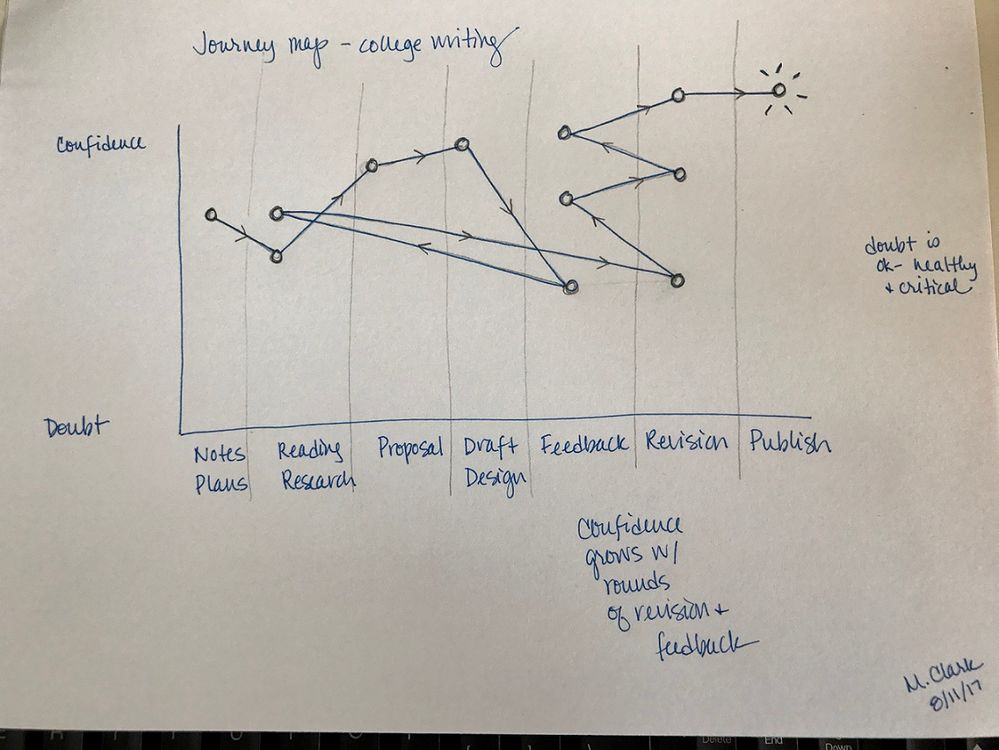 Journey map - college writing
Confidence
doubt is
ok- healthy
+ critical
Doubt
Notes
Plans
Reading
Research
Proposal
Draft
Design
Feedback
Revision
Publish
Confidence
grows w/
rounds
of revision +
feedback
M. Clark
8/11/17
Delete
End
Down